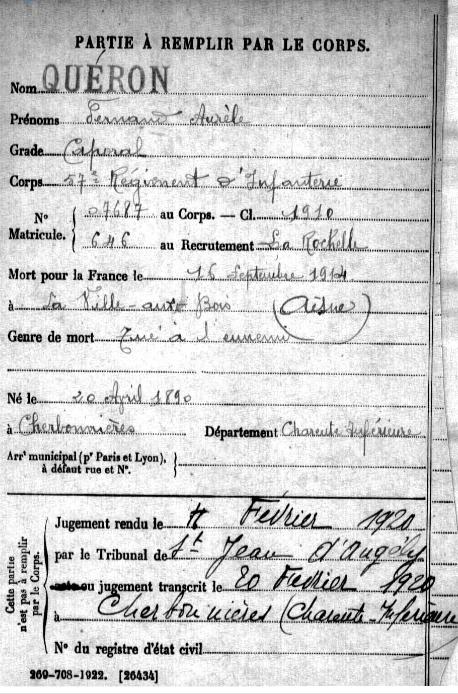 PARTIE À REMPLIR PAR LE CORPS.
Nom QUÉRON
Prénoms Fernand Aurèle
Grade Caporal
Corps 57e Régiment d'Infanterie
N° Matricule. { 07687 au Corps. — Cl. 1910
646 au Recrutement La Rochelle
Mort pour la France le 16 Septembre 1914
à La Ville-aux-Bois (Aisne)
Genre de mort Tué à l'ennemi
Né le 20 April 1890
à Cherbonnières Département Charente Inférieure
Arrt municipal (pr Paris et Lyon), à défaut rue et N°. }
Cette partie n'est pas à remplir par le Corps.
Jugement rendu le Février 1920
par le Tribunal de St Jean d'Angély
ou jugement transcrit le 20 Février 1920
à Cherbonnières (Charente-Inférieure
N° du registre d'état civil
269-708-1922. [26434]